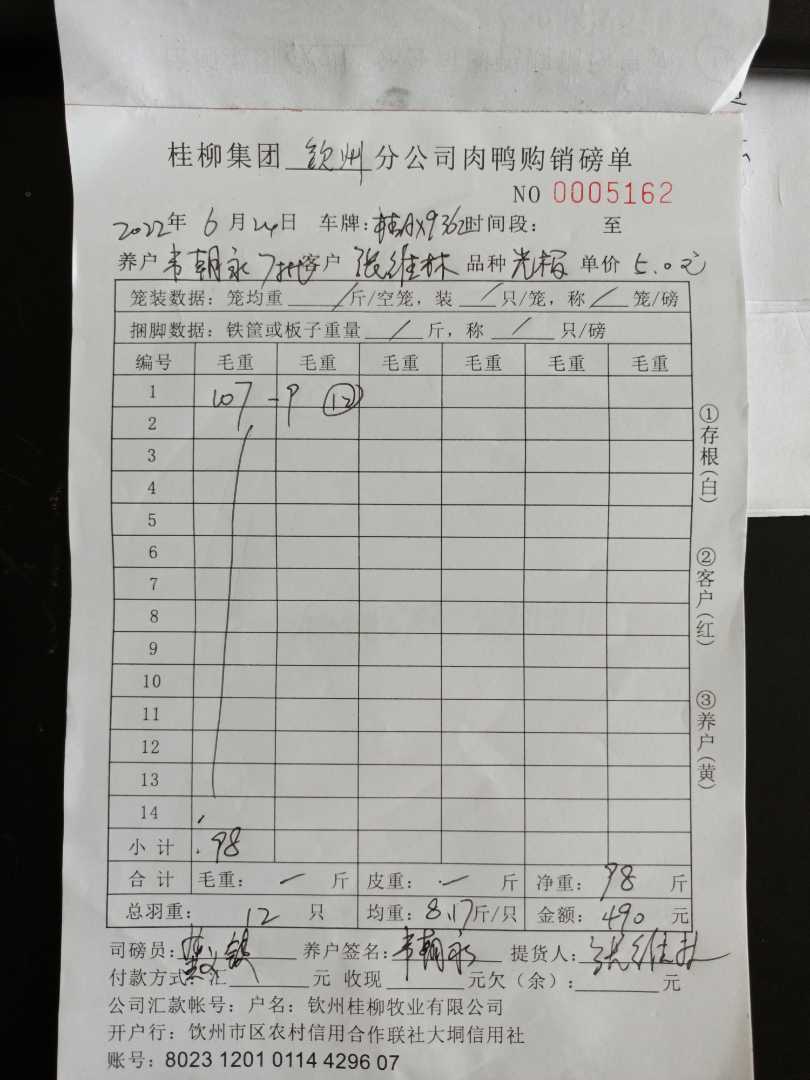 桂柳集团 钦州 分公司肉鸭购销磅单
NO 0005162
2022年 6月24日 车牌:桂AX9362时间段: 至
养户 韦朝永 7批 客户 张维林 品种 光板 单价 5.0元
笼装数据:笼均重 / 斤/空笼,装 / 只/笼,称 / 笼/磅
捆脚数据:铁筐或板子重量 / 斤,称 / 只/磅
编号 毛重 毛重 毛重 毛重 毛重 毛重
1 107 - 9 ⑫
2
3
4
5
6
7
8
9
10
11
12
13
14
小 计 98
合 计 毛重: — 斤 皮重: — 斤 净重: 98 斤
总羽重: 12 只 均重: 8.17斤/只 金额: 490 元
司磅员: 养户签名: 韦朝永 提货人: 张维林
付款方式:汇 元 收现 元欠(余): 元
公司汇款帐号:户名:钦州桂柳牧业有限公司
开户行:饮州市区农村信用合作联社大垌信用社
账号:8023 1201 0114 4296 07
①存根(白)
②客户(红)
③养户(黄)